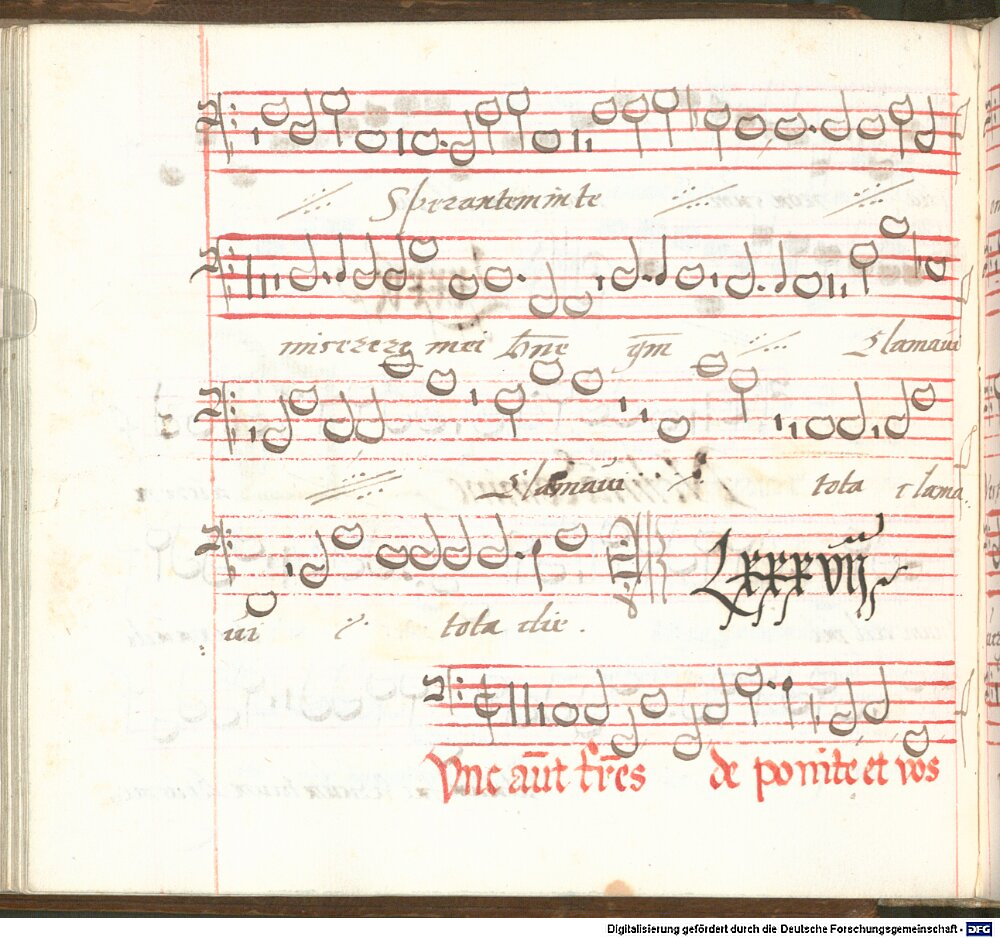 Sperantem in te
miserere mei dn̄e qm̄ Clamaui
Clamaui tota clama
ui tota die .
Lxxxvij
Vnc aūt fr̄es de ponite et vos
Digitalisierung gefördert durch die Deutsche Forschungsgemeinschaft - DFG